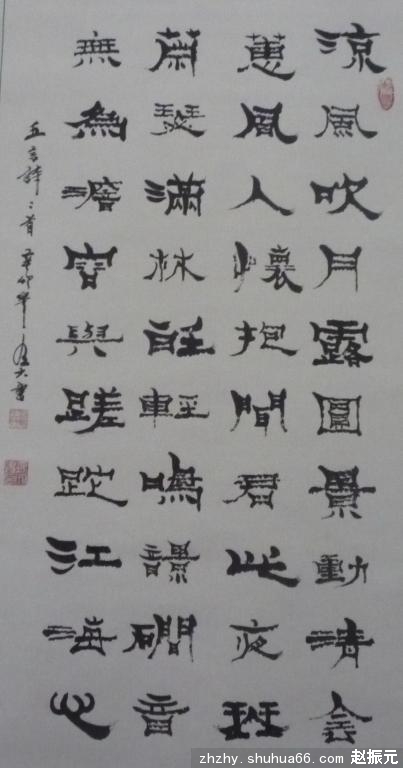 涼風吹月露圓景動清侌
蕙風入懷抱聞君此夜琴
蕭瑟滿林聽輕鳴響澗音
無為澹容與蹉跎江海心
五言詩 首 辛卯年 書
zhzhy.shuhua66.com 赵振元